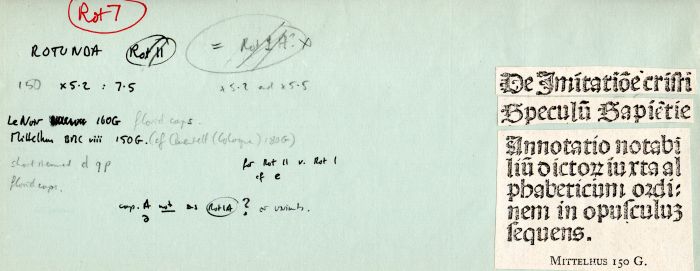 Rot 7
ROTUNDA Rot II = Rot I A? x
150 x 5·2 : 7·5 x 5·2 and x 5·5
Le Noir 160G florid caps.
Mittelhus BMC viii 150G. (cf (Cologne) 180G)
short stemmed d q p for Rot II v. Rot I
florid caps. cf e
cap. A not as Rot IA ? or variants.
a
De Imitatiōe cristi
Speculū Sapiētie
Annotatio notabi
liū dictoꝝ iuxta al
phabeticum ordi⸗
nem in opusculuꝫ
sequens.
MITTELHUS 150 G.